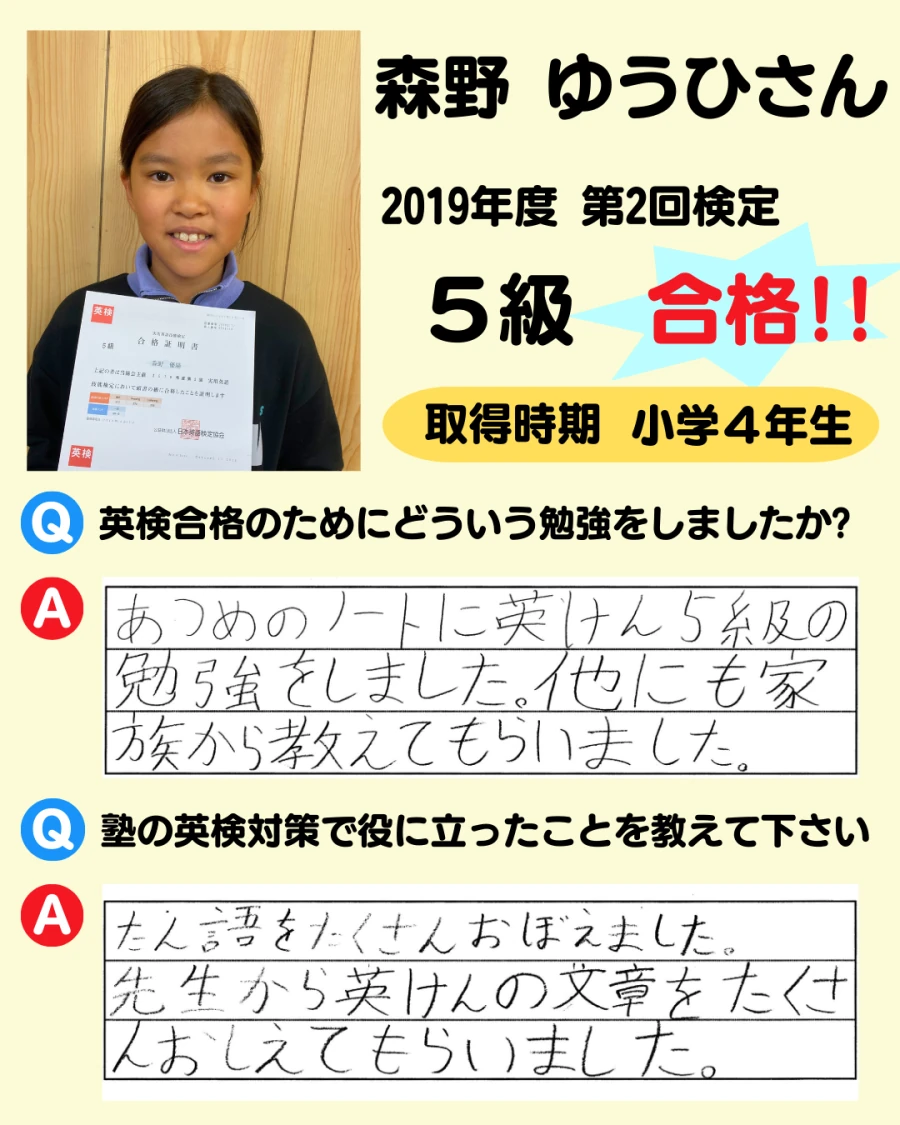 森野 ゆうひさん
2019年度 第2回検定
5級 合格!!
取得時期 小学4年生
英検
5級
合格証明書
英検
日本英語検定協会
Q 英検合格のためにどういう勉強をしましたか?
A あつめのノートに英けん5級の
勉強をしました。他にも家
族から教えてもらいました。
Q 塾の英検対策で役に立ったことを教えて下さい
A たん語をたくさんおぼえました。
先生から英けんの文章をたくさ
んおしえてもらいました。